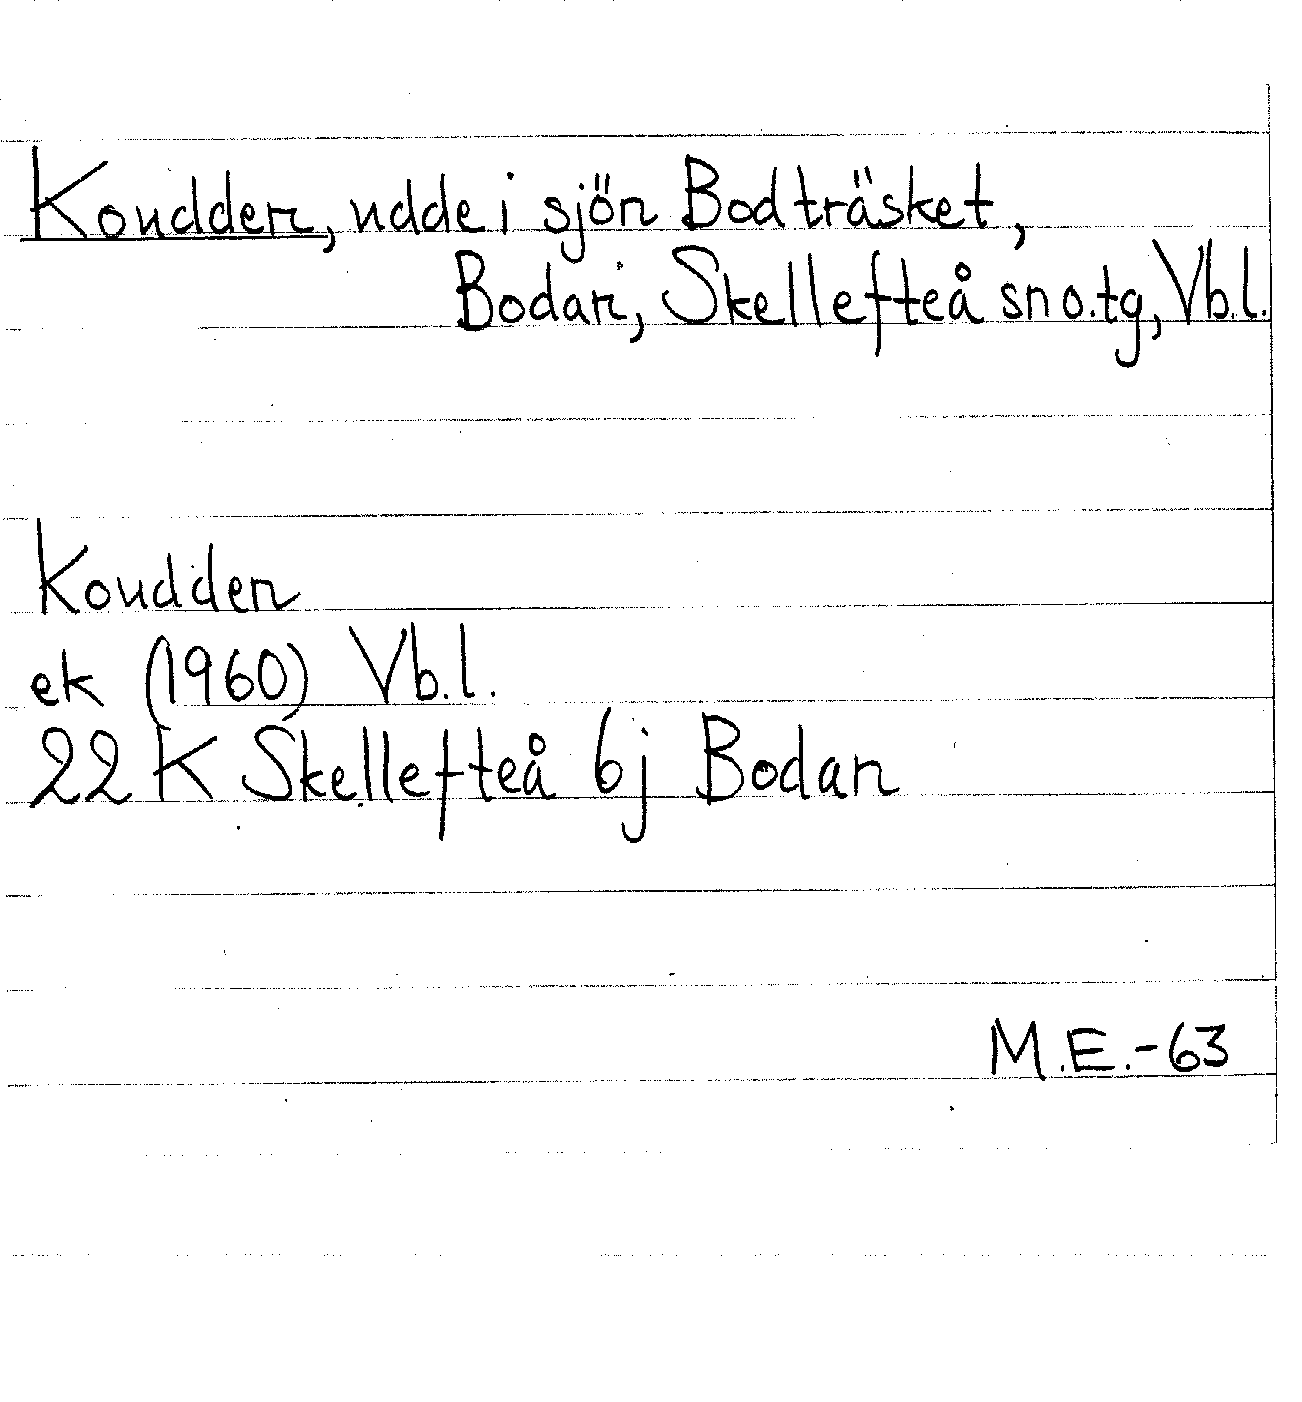 Koudden, udde i sjön Bodträsket,
Bodan, Skellefteå sn o. tg, Vb.l.
Koudden
ek (1960) Vb.l.
22 K Skellefteå 6j Bodan
M.E.-63